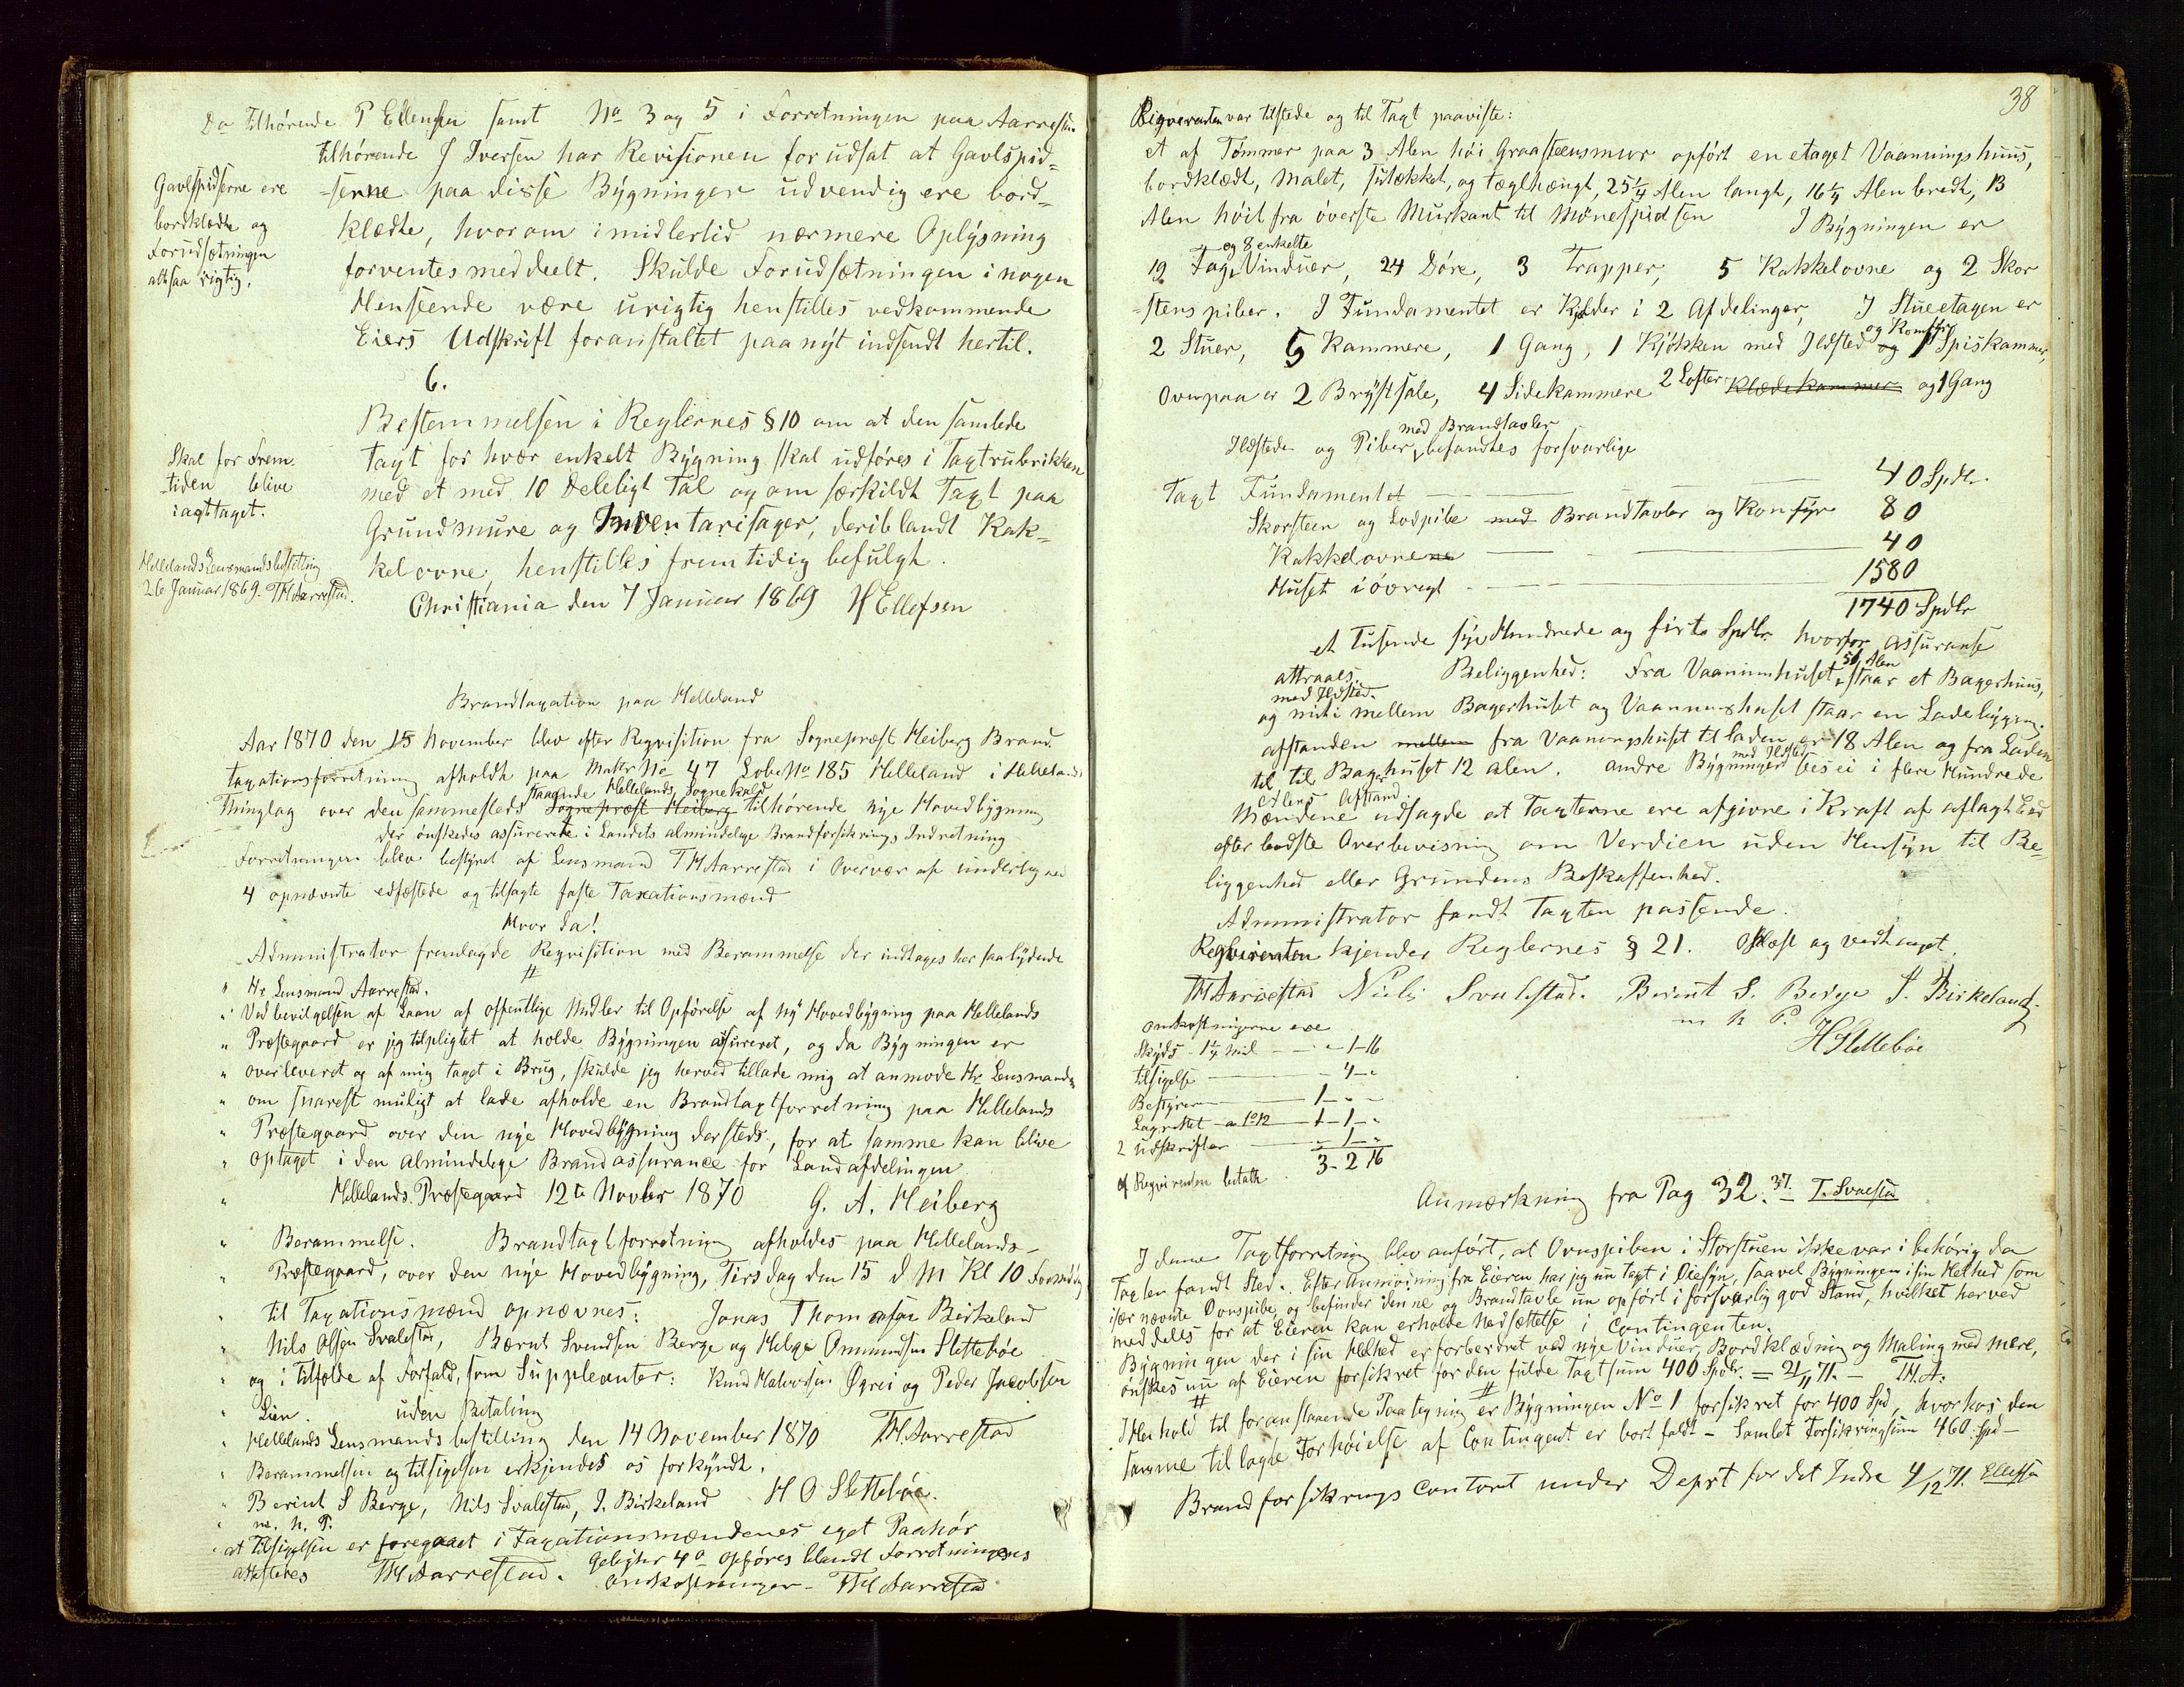 Do tilhørende P Ellensen samt No 3 og 5 i Forretningen paa Aarrestad
tilhørende J Iversen har Revisionen forudsat at Gavlspid-
serne paa disse Bygninger udvendig ere bord-
klædte, hvorom imidlertid nærmere Oplysning
forventes meddeelt. Skulde Forudsætningen i nogen
Henseende være urigtig henstilles vedkommende
Eiers Udskrift foranstaltet paa nyt indsendt hertil.
Gavlspidserne ere
bordklædte og
Forudsætningen
altsaa rigtig.
6.
Bestemmelsen i Reglernes § 10 om at den samlede
Taxt for hvær enkelt Bygning skal udføres i Taxtrubrikken
med et med 10 deleligt Tal og om særskildt Taxt paa
Grundmure og Inventarisager, deriblandt Kak-
kelovne, henstilles fremtidig befulgt.
Christiania den 7 Januar 1869 H Ellefsen
Skal for Frem-
tiden blive
iagttaget.
Hellelands Lensmandsbestilling
26 Januar 1869. TH Aarrestad.
Brandtaxation paa Helleland
Aar 1870 den 15 November blev efter Reqvisition fra Sognepræst Heiberg Brand-
taxationsforretning afholdt paa Mattr No 47 Løbe No 185 Helleland i Hellelands
staaende Hellelands Sognekald
Thinglag over den sammesteds Sognepræst Heiberg tilhørende nye Hovedbygning
der ønskedes assurerede i Landets almindelige Brandforsikrings Indretning
Forretningen blev bestyret af Lensmand TH Aarrestad i Overvær af undertegnede
4 opnævnte edfæstede og tilsagte faste Taxationsmænd
Hvor da!
Administrator fremlagde Reqvisition med Berammelse der indtages her saalydende
" Hr Lensmand Aarrestad.
" Ved bevilgelsen af Laan af offentlige Midler til Opførelse af ny Hovedbygning paa Hellelands
" Præstegaard er jeg tilpligtet at holde Bygningen assureret, og da Bygningen er
" overleveret og af mig taget i Brug, skulde jeg herved tillade mig at anmode Hr Lensmanden
" om snarest muligt at lade afholde en Brandtaxtforretning paa Hellelands
" Præstegaard over den nye Hovedbygning dersteds, for at samme kan blive
" optaget i den almindelige Brandassurance for Landafdelingen
" Hellelands Præstegaard 12te Novbr 1870 G. A. Heiberg
" Berammelse. Brandtaxtforretning afholdes paa Hellelands-
" Præstegaard, over den nye Hovedbygning, Tirsdag den 15 d M Kl 10 Formiddag
" til Taxationsmænd opnævnes: Jonas Thomassen Birkeland
" Nils Olsen Svalestad, Bærnt Svendsen Berge og Helge Ommundsen Slettebøe
" og i tilfælde af Forfald, som Suppleanter: Knud Halvorsen Øgrei og Peder Jacobsen
" Lien. uden Betaling
" Hellelands Lensmandsbestilling den 14 November 1870 TH Aarrestad
" Berammelsen og tilsigelsen erkjendes os forkyndt.
" Berint S Berge, Nils Svalestad, J. Birkeland H O Slettebøe.
" m. h. P.
" at Tilsigelsen er foregaaet i Taxationsmændenes eget Paahør
attesteres TH Aarrestad. Gebyhr 4 o opføres blandt Forretningens
Omkostninger - TH Aarrestad
38
Reqvirenten var tilstede og til Taxt paaviste:
et af Tømmer paa 3 Alen høi Graasteensmur opført en etaget Vaaningshuus,
bordklædt, malet, sutækket, og tæglhængt, 25 1/4 Alen langt, 16 1/4 Alen bredt, 13
Alen høit fra øverste Murkant til Mønespidsen I Bygningen er
og 8 enkelte
12 Fag Vinduer, 24 Døre, 3 Trapper, 5 Kakkelovne og 2 Skor
-stenspiber. I Fundamentet er Kjelder i 2 Afdelinger, I Stueetagen er
og Komfyr
2 Stuer, 5 Kammere, 1 Gang, 1 Kjøkken med Ildsted og 1 Spiskammer,
Ovenpaa er 2 Brystsale, 4 Sidekammere 2 Lofter Klædekammer og 1 Gang
med Brandtavler
Ildsteder og Piber befandtes forsvarlige
Taxt Fundamentet 40 Spdlr.
Skorsteen og Lodpibe med Brandtavler og Konfyr 80
Kakkelovnene 40
Huset iøvrigt 1580
1740 Spdlr
et Tusende syv Hundrede og firti Spdlr. hvorfor Assuranse
attraaes. Beliggenhed: Fra Vaaninhuset 51 Alen staar et Bagerhuus,
med Ildsted.
og midt imellem Bagerhuset og Vaaningshuset staar en Ladebygning.
afstanden mellem fra Vaaningshuset til laden er 18 Alen og fra Laden
med Ildsted
til til Bagerhuset 12 alen. andre Bygninger sees ei i flere Hundrede
Alens Afstand.
Mændene udsagde at Taxterne ere afgivne i Kraft af aflagt Eed
efter bedste Overbevisning om Verdien uden Hensyn til Be-
liggenhed eller Grundens Beskaffenhed.
Administrator fandt Taxten passende.
Reqvirenten kjender Reglernes § 21. Oplæst og vedtaget.
TH Aarrestad Nils Svalestad. Berint S. Berge J. Birkeland.
m h P.
H Slettebøe
Omkostningerne ere
Skyds 1 1/4 Mil - " - 1 - 16
tilsigelse - 4 - "
Bestyrer 1 - " -
Lagrettet 1 - 1 - "
2 udskrifter " 1 - "
3 - 2 16
af Reqvirenten betalt
Anmærkning fra Pag 32. 37. T. Svalestad
I denne Taxtforretning blev anført, at Ovnspiben i Storstuen ikke var i behørig da
Taxten fandt Sted. Efter Anmodning fra Eieren har jeg nu taget i Øiesyn, saavel Bygningen i sin Helhed som
især nævnte Ovnspibe, og befinder denne og Brandtavle nu opført i forsvarlig god Stand, hvilket herved
meddeles for at Eieren kan erholde Nedsættelse i Contingenten.
Bygningen der i sin Helhed er forbedret ved nye Vinduer, Bordklædning og Maling med mere,
ønskes nu af Eieren forsikret for den fulde Taxtsum 400 Spdlr. = 2/11 71. - TH. A.
I Henhold til foranstaaende Paategning er Bygningen No 1 forsikret for 400 Spd, hvorhos den
samme tillagte Forhøielse af Contingent er bortfaldt - Samlet Forsikringssum 460 Spd -
Brandforsikrings Contoret under Deprt for det Indre 4/12 71. Ellefsen